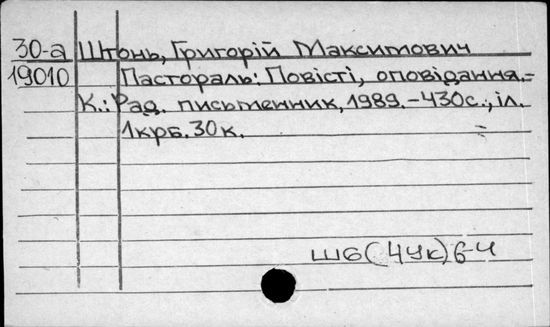 30-а Штонь, Григорій Максимович
19010 Пастораль: Повісті, оповідання.-
К.: Рад. письменник, 1989.-430с., іл.
1крб.30к. =
Ш6(4Ук)6-4